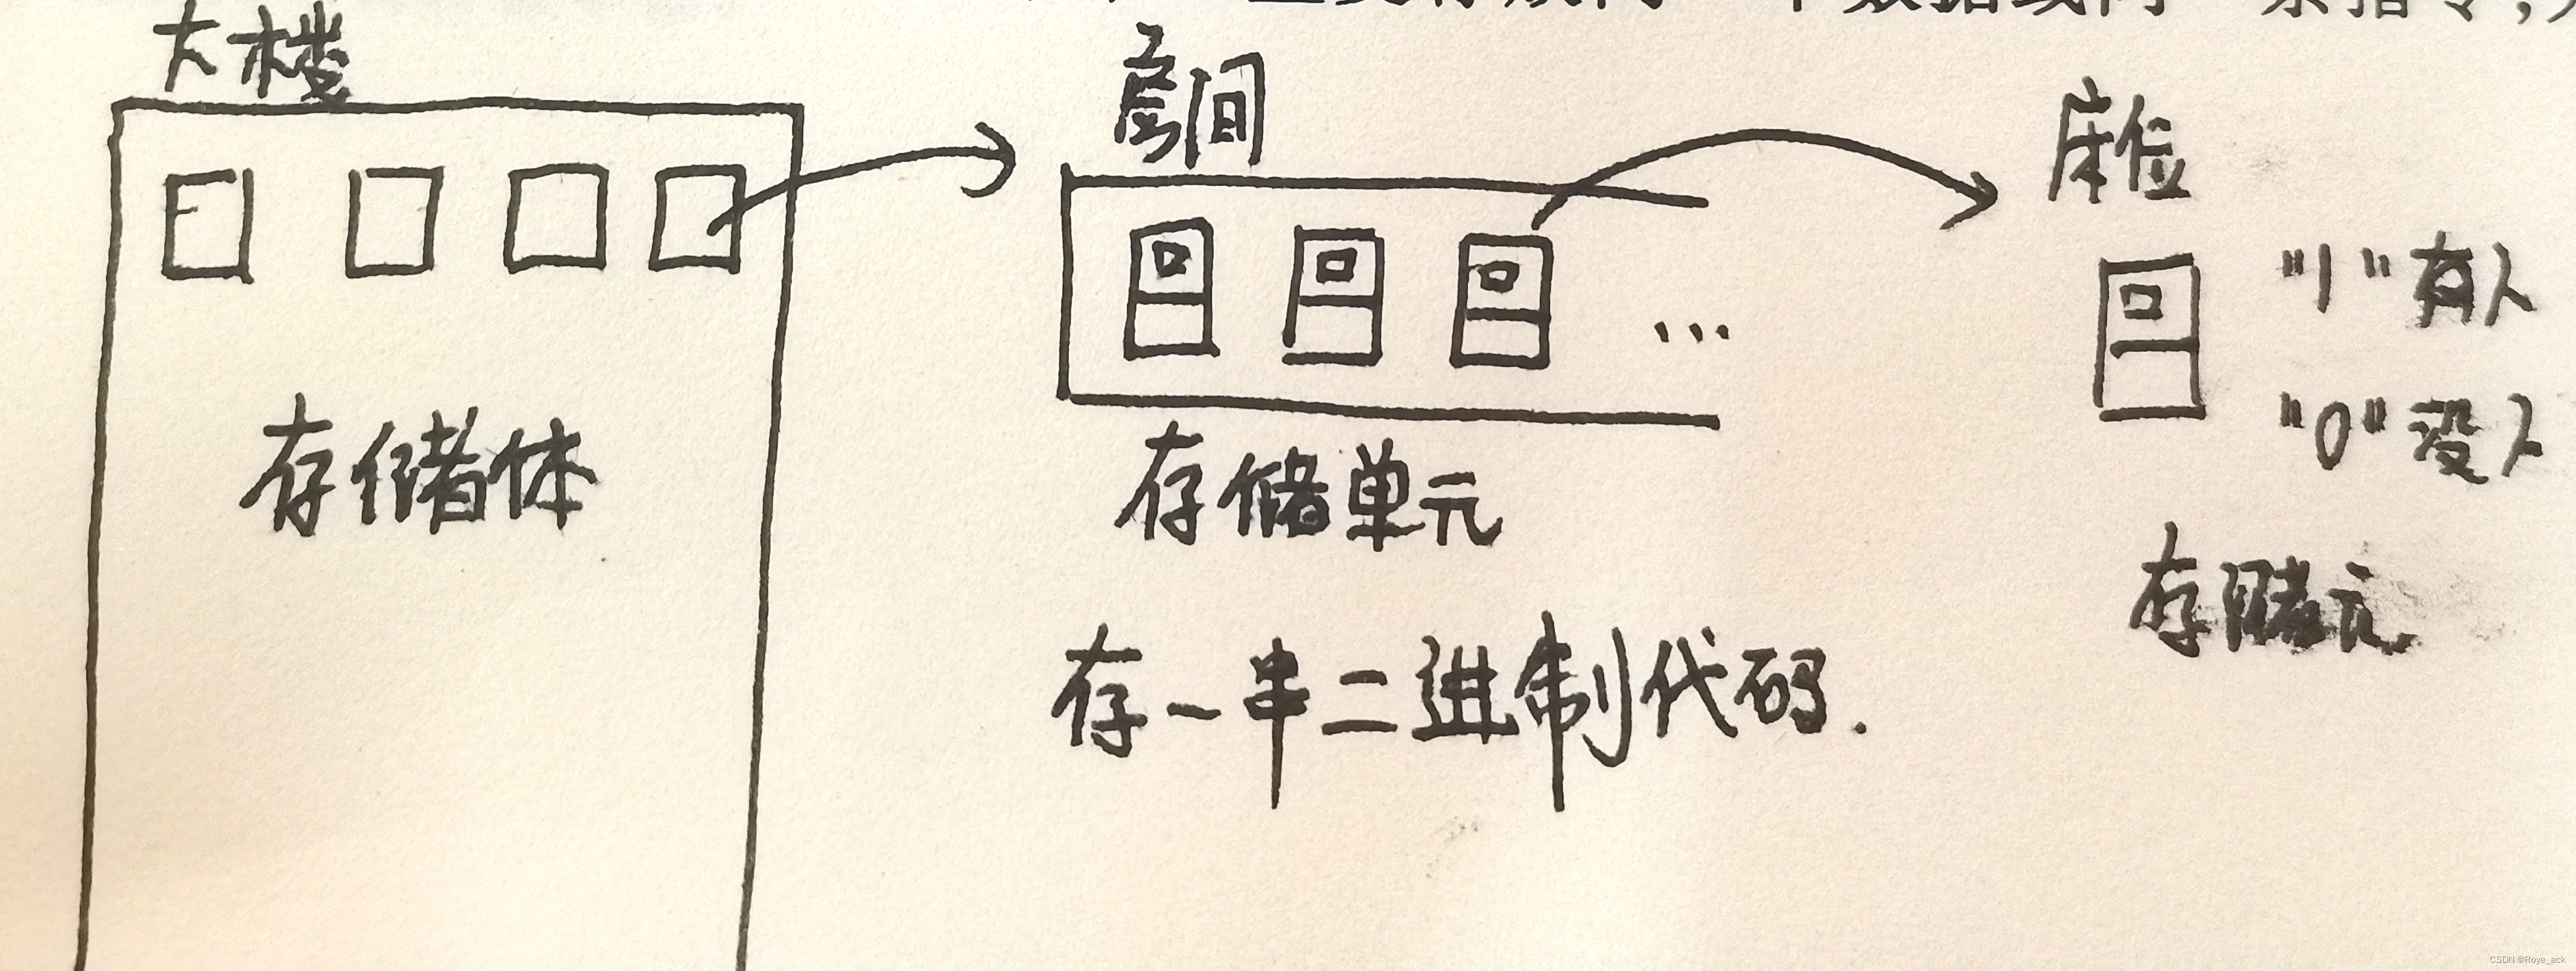 大楼
房间
床位
"1"有人
"0"没人
存储体
存储单元
存储元
存一串二进制代码.
CSDN @Roye_ack